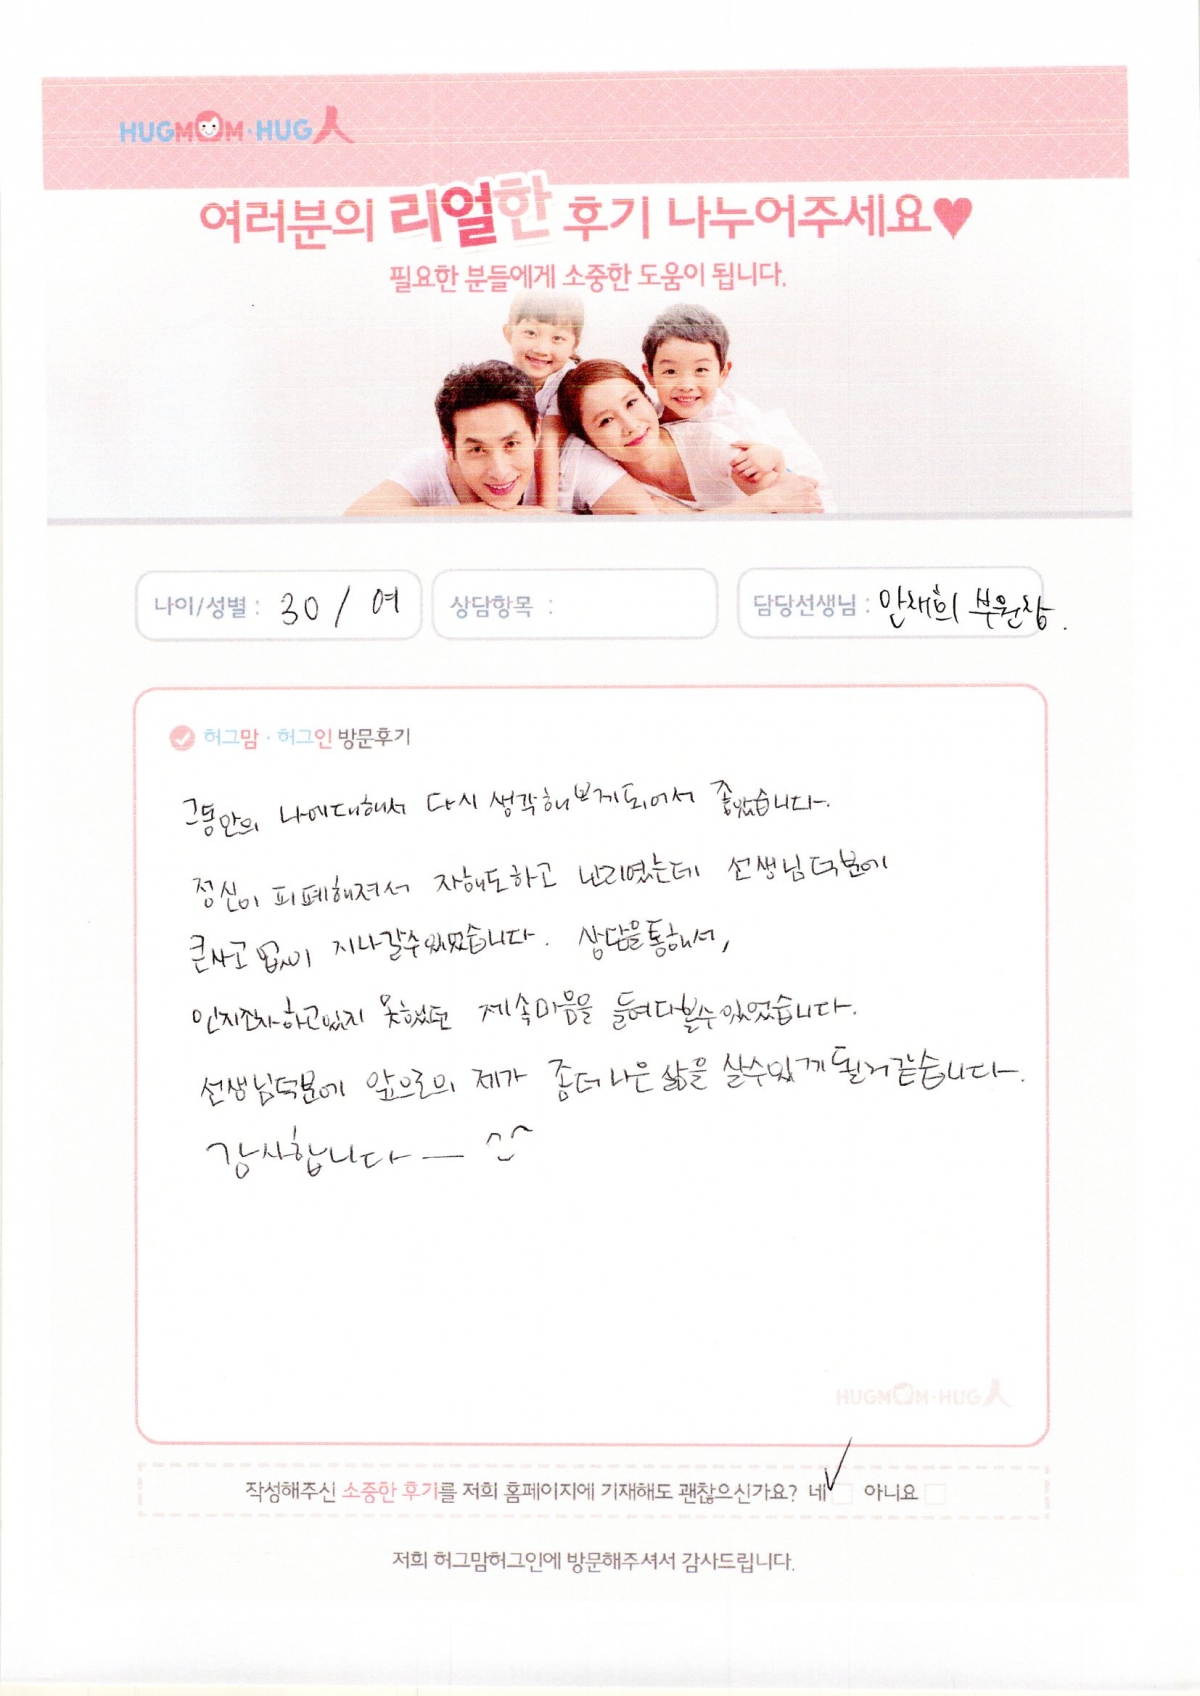 HUGMOM·HUG人
여러분의 리얼한 후기 나누어주세요♥
필요한 분들에게 소중한 도움이 됩니다.
나이/성별 : 30 / 여
상담항목 :
담당선생님 : 안채희 부원장.
허그맘·허그인 방문후기
그동안의 나에대해서 다시 생각해보게되어서 좋았습니다.
정신이 피폐해져서 자해도하고 난리였는데 선생님덕분에
큰사고 없이 지나갈수있었습니다. 상담을통해서,
인지조차하고있지 못했던 제속마음을 들여다볼수있었습니다.
선생님덕분에 앞으로의 제가 좀더나은 삶을 살수있게될거같습니다.
감사합니다 — ^^
HUGMOM·HUG人
작성해주신 소중한 후기를 저희 홈페이지에 기재해도 괜찮으신가요? 네 ✓ 아니요
저희 허그맘허그인에 방문해주셔서 감사드립니다.